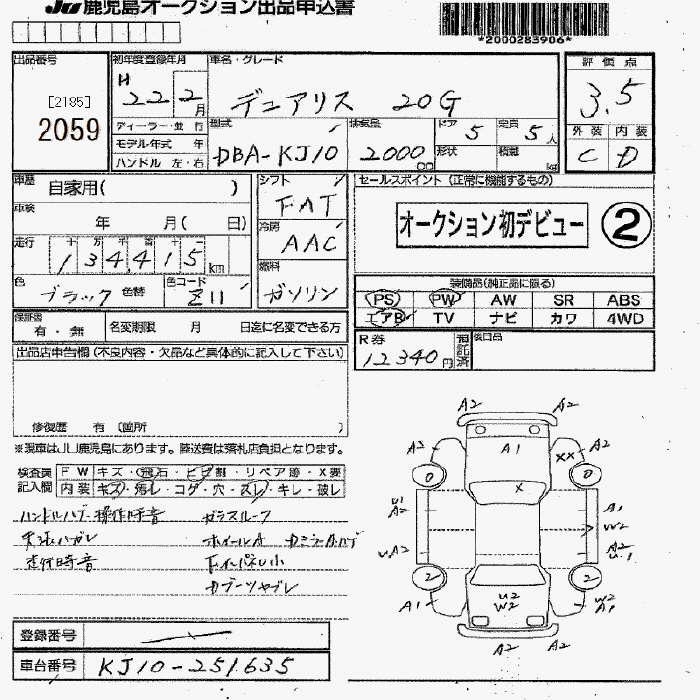 JU 鹿児島オークション出品申込書
*2000283906*
出品番号
[2185]
2059
初年度登録年月
H 22 2 月
車名・グレード
デュアリス 20G
評価点
3.5
外装 内装
C D
ディーラー・並行
モデル年式 年
ハンドル 左・右
型式
DBA-KJ10
排気量
2000 cc
ドア 5
定員 5 人
形状
積載 kg
車歴 自家用( )
車検
年 月( 日)
走行 十 万 千 百 十 一
134,415 km
色
ブラック 色替
色コード
Z11
シフト
FAT
冷房
AAC
燃料
ガソリン
セールスポイント (正常に機能するもの)
オークション初デビュー ②
装備品(純正品に限る)
PS PW AW SR ABS
エアB TV ナビ カワ 4WD
保証書
有・無
名変期限 月 日迄に名変できる方
R券
12340円
預託済
後日品
出品店申告欄 (不良内容・欠品など具体的に記入して下さい)
修復歴 有 〔箇所 〕
※現車はJU鹿児島にあります。陸送費は落札店負担となります。
検査員
記入欄
FW キズ・飛石・ヒビ割・リペア跡・X要
内装 キズ・汚レ・コゲ・穴・スレ・キレ・破レ
操作時音
ガラスルーフ
ハガレ
ホイールA
走行時音
A2 A2
A2 A1 A2
XX
0 0
X
U1
A2
A1
W2
U.A2
A2
U.1
2 2
U2
W2
A1
W2
A1
A2 A2
登録番号
車台番号 KJ10-251635